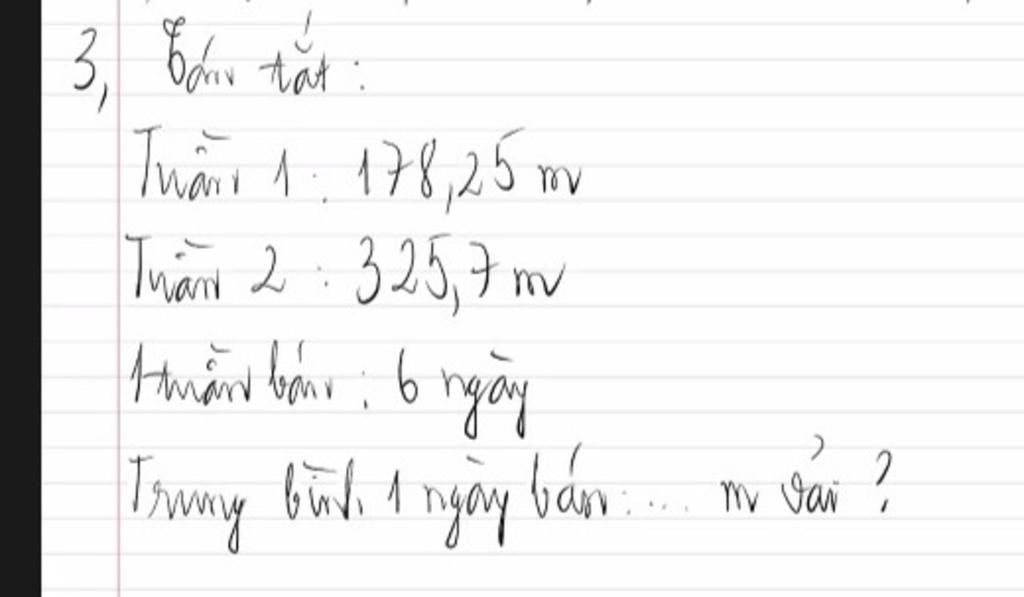 3, Tóm tắt:
Tuần 1: 178,25 m
Tuần 2: 325,7 m
1 tuần bán: 6 ngày
Trung bình 1 ngày bán:... m vải?